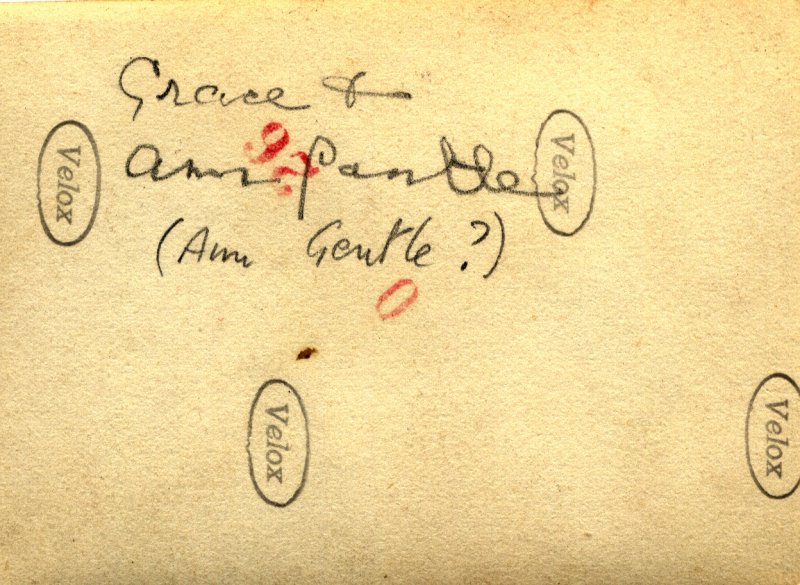 Grace &
Ann Pantle
(Ann Gentle?)
92
0
Velox
Velox
Velox
Velox